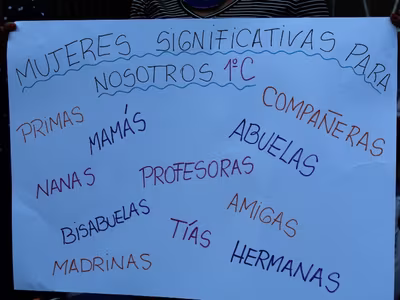 MUJERES SIGNIFICATIVAS PARA
NOSOTROS 1°C
PRIMAS
MAMÁS
COMPAÑERAS
ABUELAS
NANAS
PROFESORAS
BISABUELAS
TÍAS
AMIGAS
MADRINAS
HERMANAS